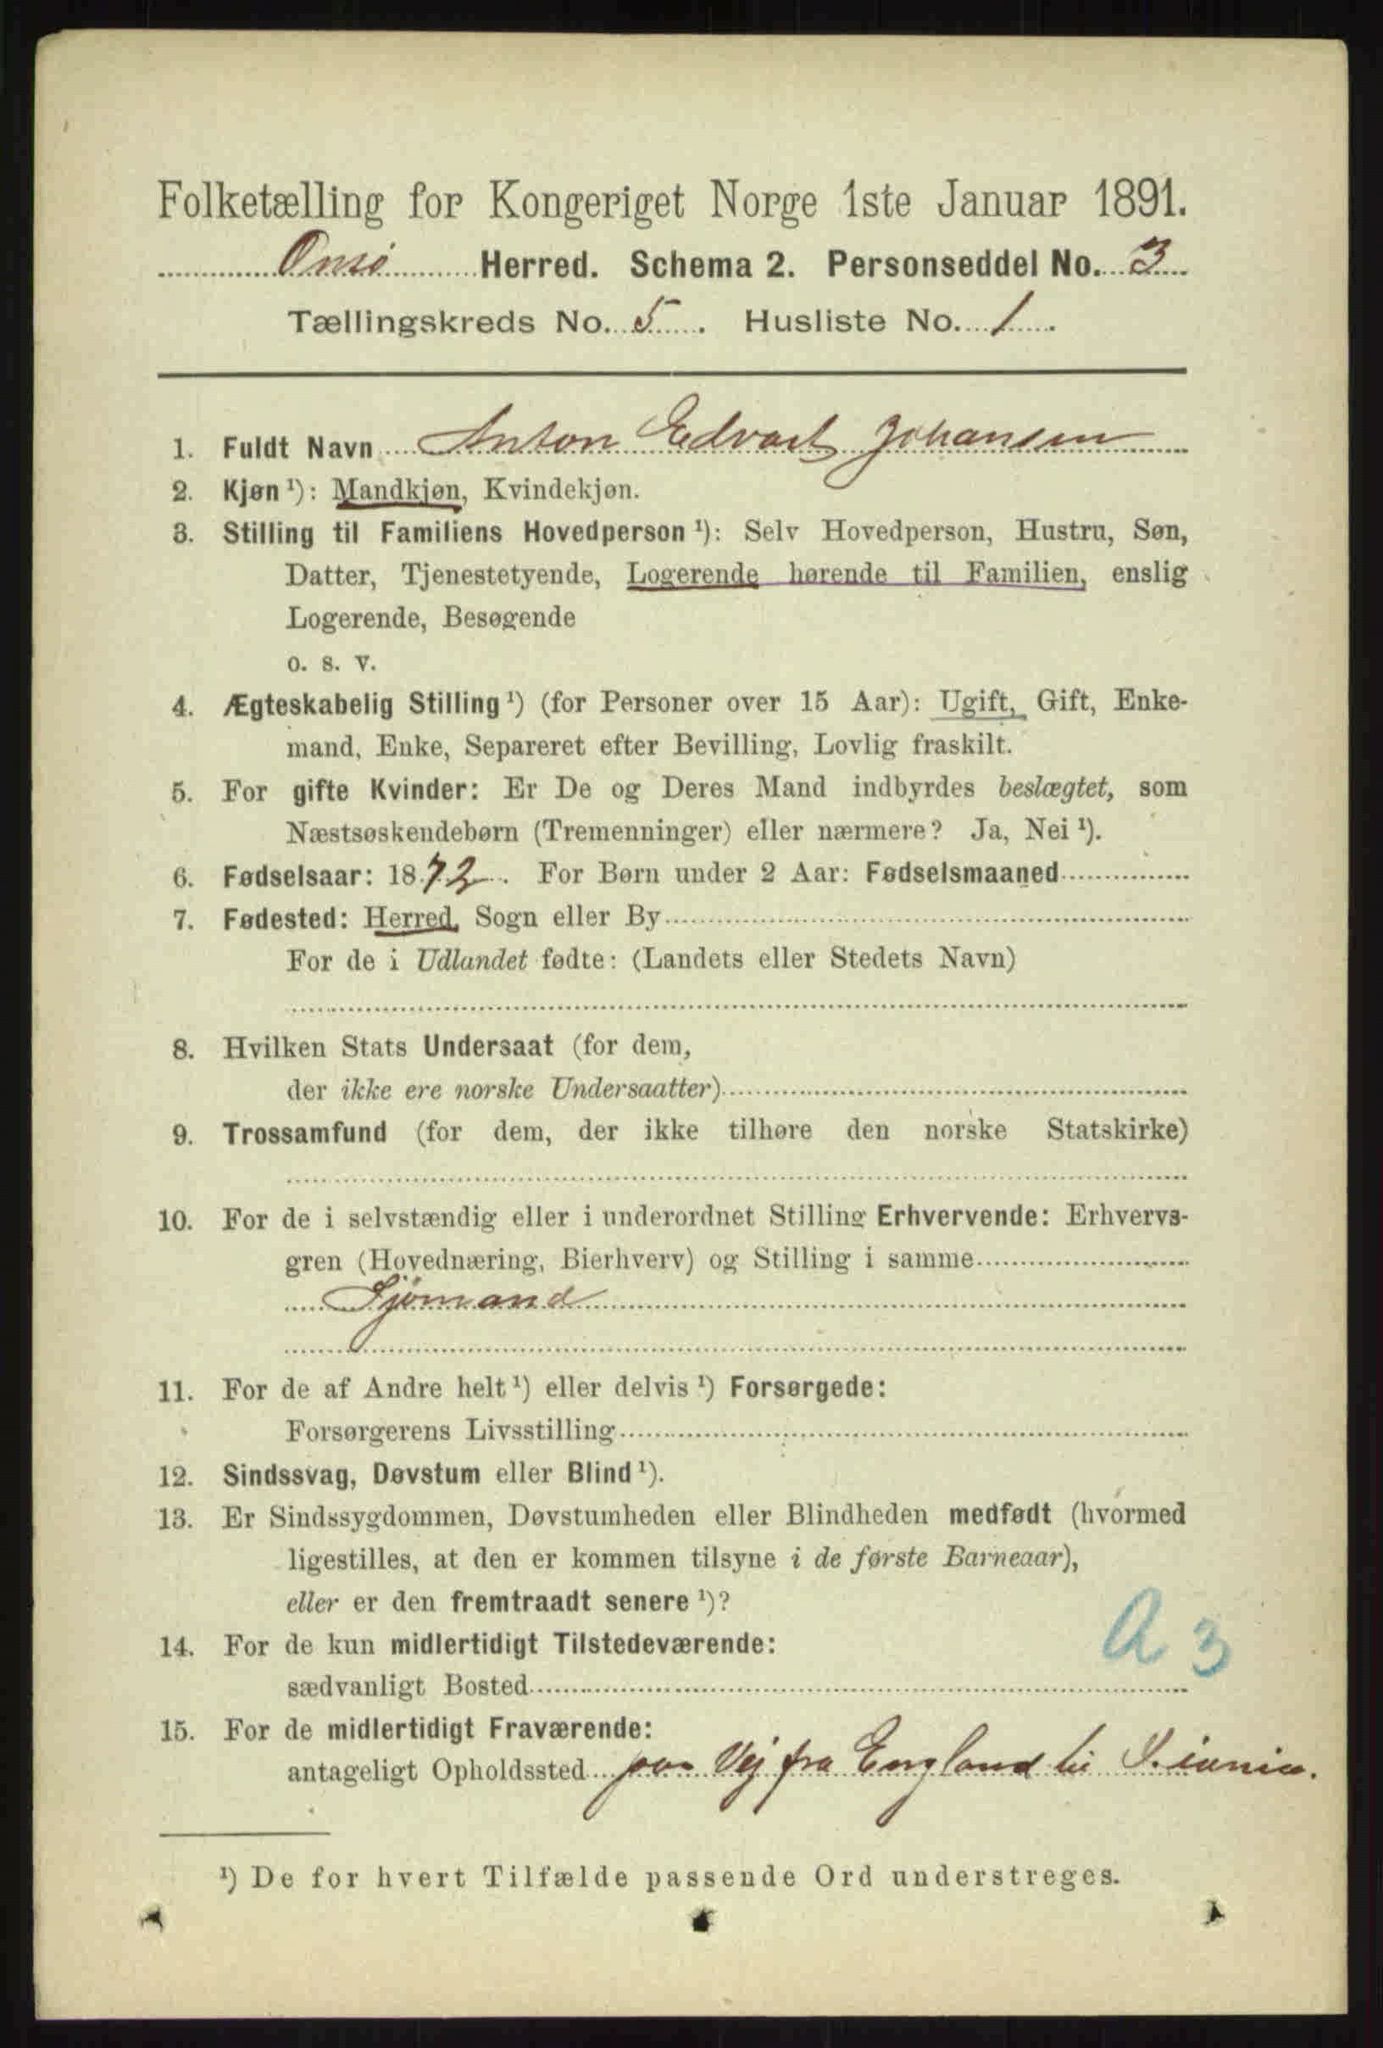 Folketælling for Kongeriget Norge 1ste Januar 1891.
Onsø Herred. Schema 2. Personseddel No. 3
Tællingskreds No. 5. Husliste No. 1.
1. Fuldt Navn Anton Edvart Johansen
2. Kjøn ¹): Mandkjøn, Kvindekjøn.
3. Stilling til Familiens Hovedperson ¹): Selv Hovedperson, Hustru, Søn,
Datter, Tjenestetyende, Logerende hørende til Familien, enslig
Logerende, Besøgende
o. s. v.
4. Ægteskabelig Stilling ¹) (for Personer over 15 Aar): Ugift, Gift, Enke-
mand, Enke, Separeret efter Bevilling, Lovlig fraskilt.
5. For gifte Kvinder: Er De og Deres Mand indbyrdes beslægtet, som
Næstsøskendebørn (Tremenninger) eller nærmere? Ja, Nei ¹).
6. Fødselsaar: 1872. For Børn under 2 Aar: Fødselsmaaned
7. Fødested: Herred, Sogn eller By
For de i Udlandet fødte: (Landets eller Stedets Navn)
8. Hvilken Stats Undersaat (for dem,
der ikke ere norske Undersaatter)
9. Trossamfund (for dem, der ikke tilhøre den norske Statskirke)
10. For de i selvstændig eller i underordnet Stilling Erhvervende: Erhvervs-
gren (Hovednæring, Bierhverv) og Stilling i samme
Sjømand
11. For de af Andre helt ¹) eller delvis ¹) Forsørgede:
Forsørgerens Livsstilling
12. Sindssvag, Døvstum eller Blind ¹).
13. Er Sindssygdommen, Døvstumheden eller Blindheden medfødt (hvormed
ligestilles, at den er kommen tilsyne i de første Barneaar),
eller er den fremtraadt senere ¹)?
A 3
14. For de kun midlertidigt Tilstedeværende:
sædvanligt Bosted
15. For de midlertidigt Fraværende:
antageligt Opholdssted paa Vej fra England til
¹) De for hvert Tilfælde passende Ord understreges.